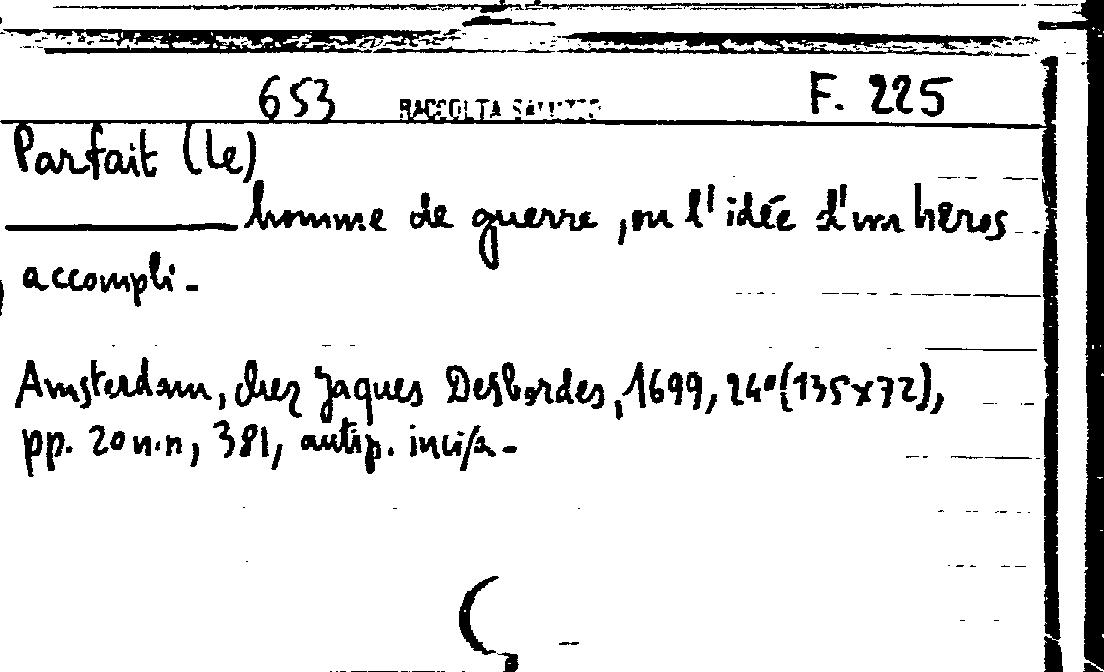 653 RACCOLTA SALUZZO F. 225
Parfait (Le)
homme de guerre, ou l'idée d'un héros
accompli.
Amsterdam, chez Jaques Desbordes, 1699, 24° (135x72),
pp. 20 n.n, 381, antip. incisa.